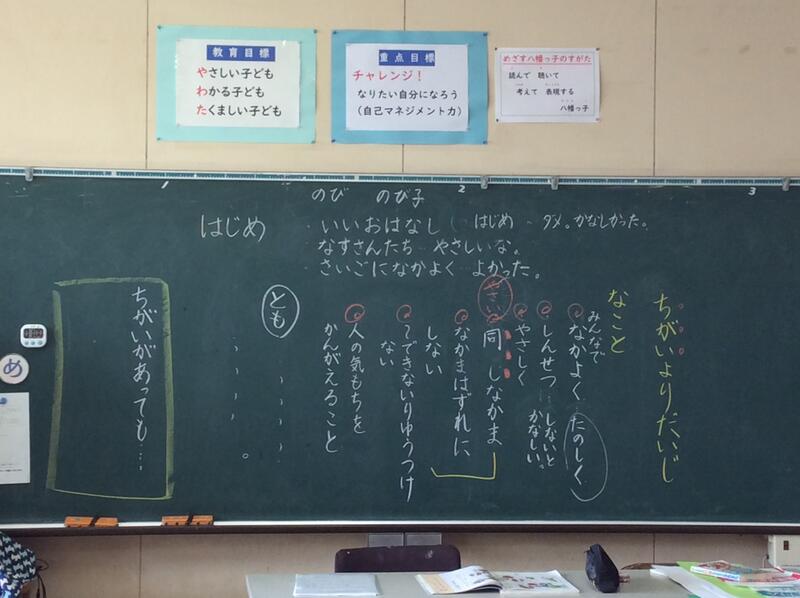 教育目標
やさしい子ども
わかる子ども
たくましい子ども
重点目標
チャレンジ！
なりたい自分になろう
（自己マネジメント力）
めざす八幡っ子のすがた
読んで 聴いて
考えて 表現する
八幡っ子
1
2
3
のび のび子
はじめ
・いいおはなし はじめ ダメ。かなしかった。
・なすさんたち やさしいな。
・さいごになかよく よかった。
ちがいよりだいじ
なこと
みんなで
なかよく たのしく
しんせつ…しないと
かなしい。
やさしく
やさい
同 しなかま
なかまはずれに
しない
〜できないりゆうつけ
ない
人の気もちを
かんがえること
とも
ちがいがあっても…
め